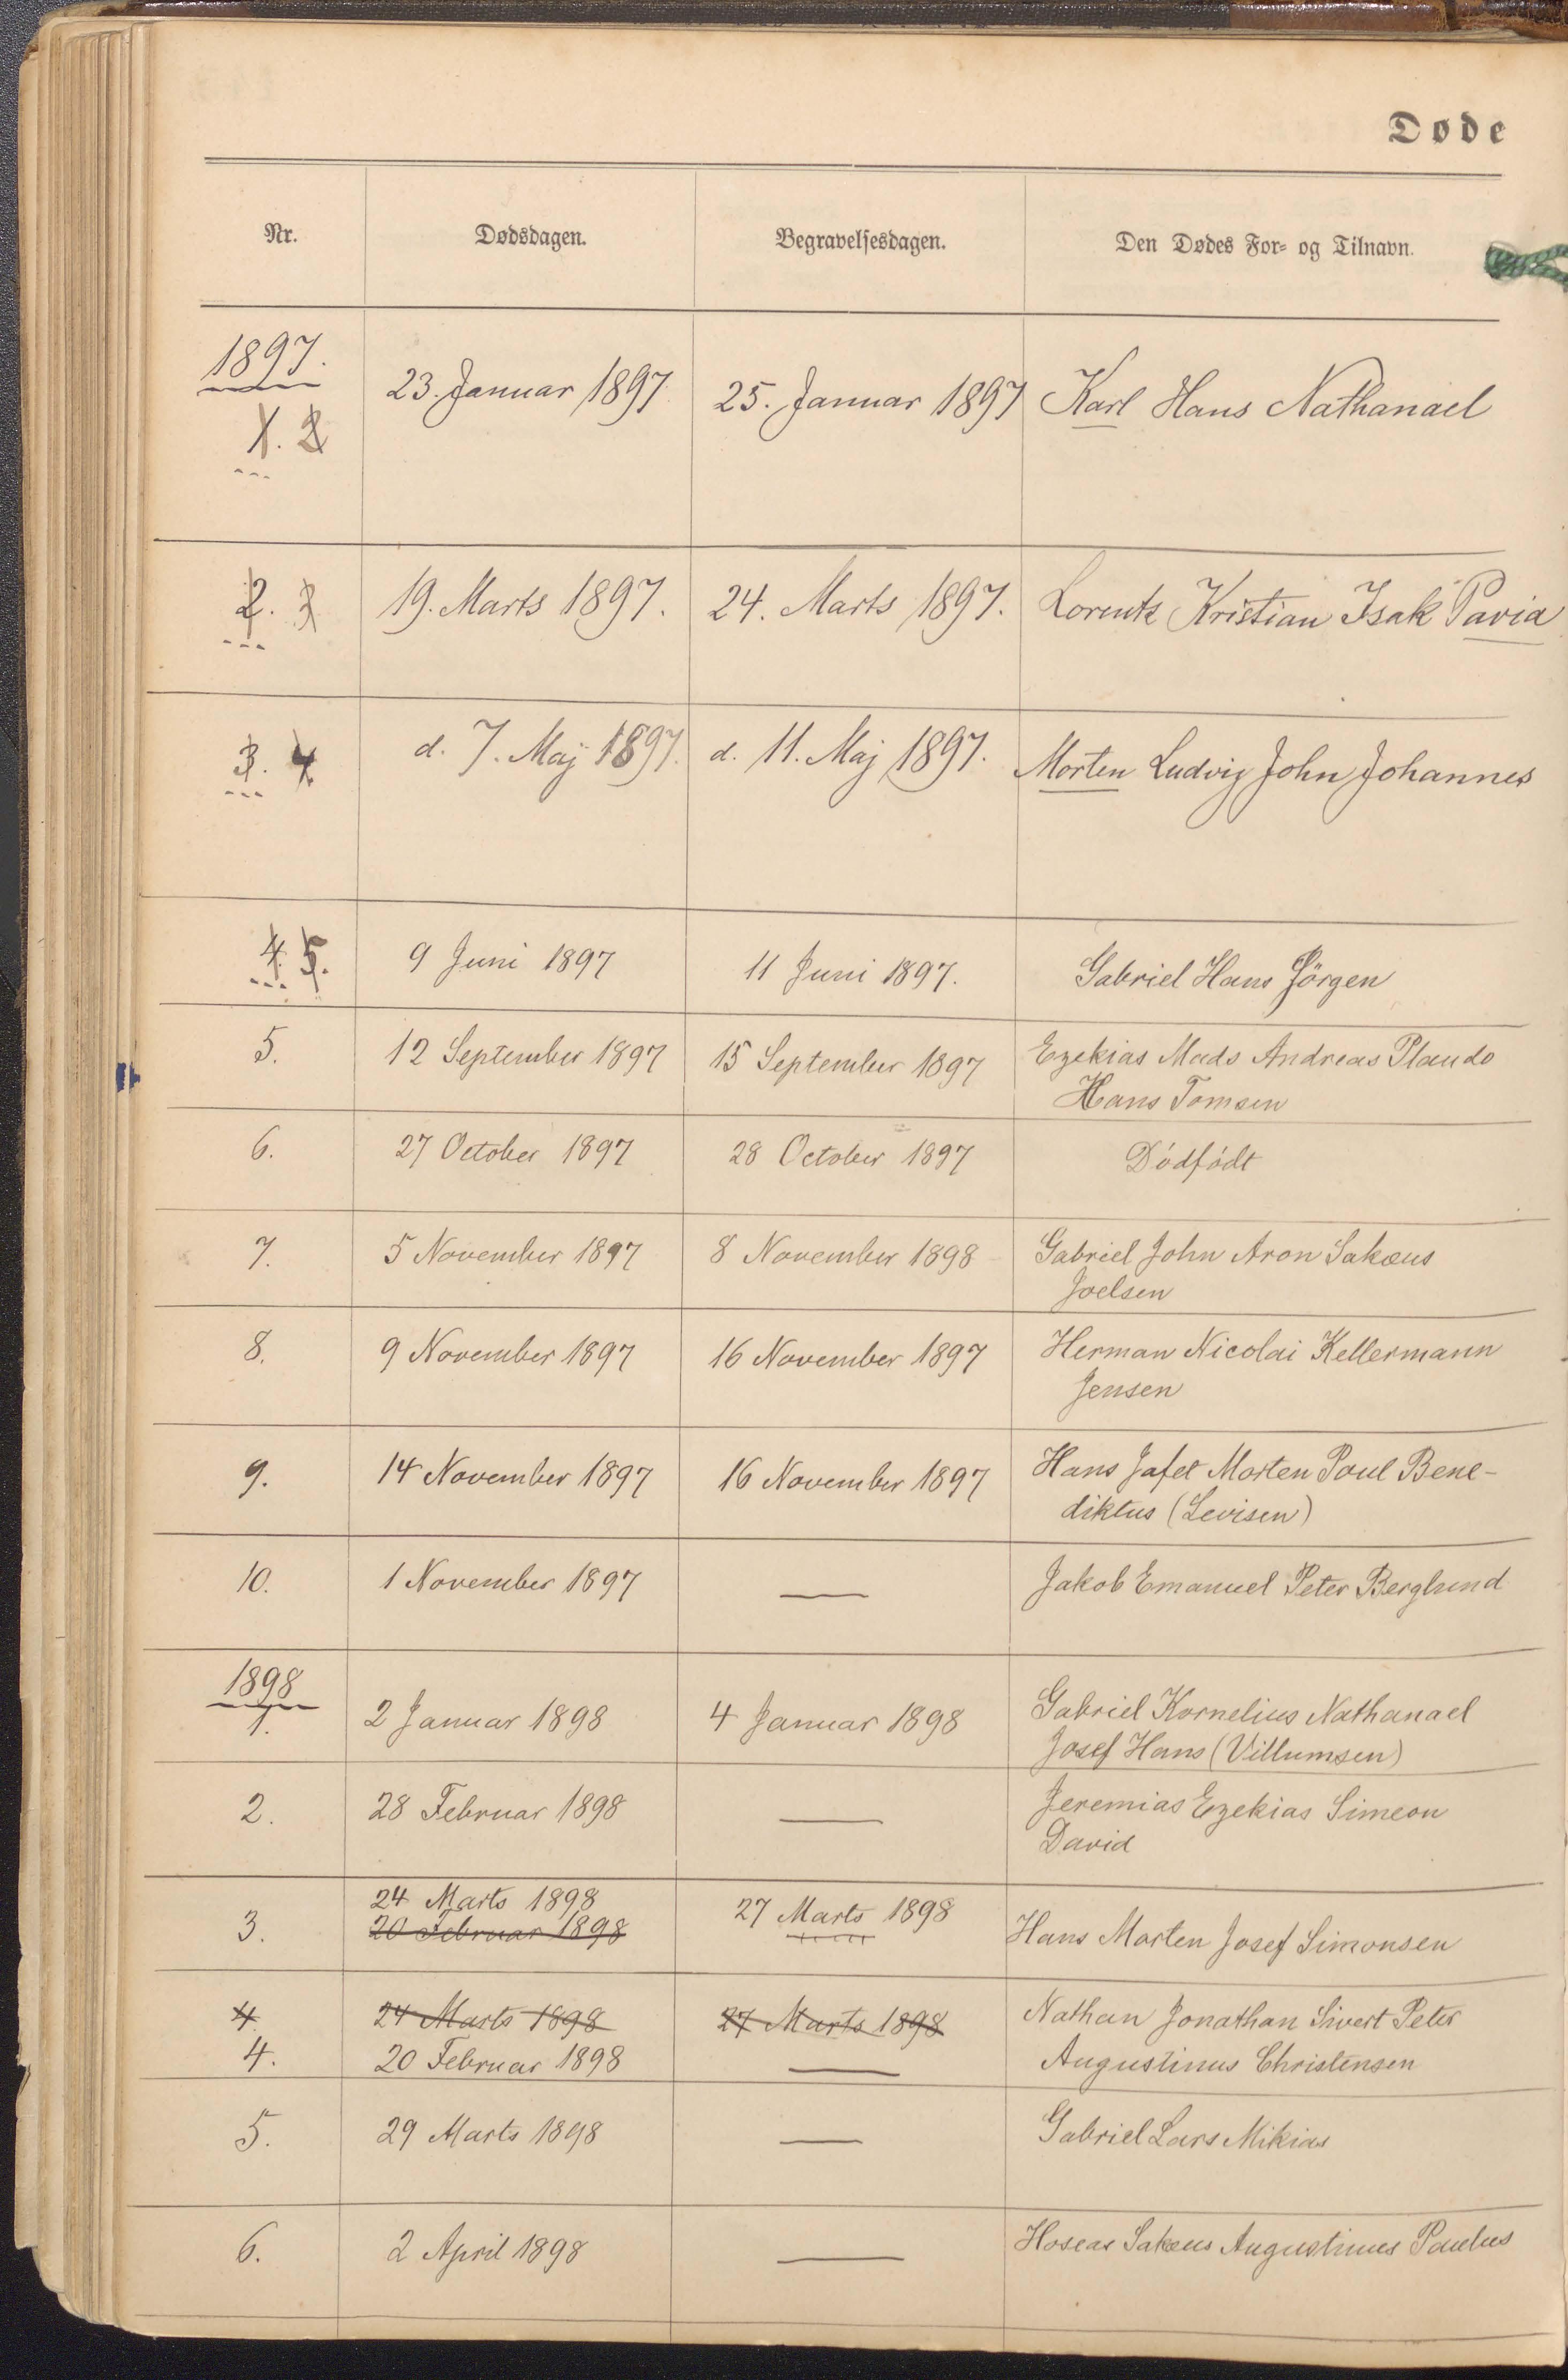 Døde
Nr. Dødsdagen. Begravelsesdagen. Den Dødes For- og Tilnavn.
1897.
23. Januar 1897 25. Januar 1897 Karl Hans Nathanael
1. 2
2. 3 19. Marts 1897. 24. Marts 1897. Lorentz Kristian Isak Pavia
3. 4 d. 7. Maj 1897. d. 11. Maj 1897. Morten Ludvig John Johannes
4. 5. 9 Juni 1897 11 Juni 1897. Gabriel Hans Jörgen
5. 12 September 1897 15 September 1897 Ezekias Mads Andreas Plaudo
Hans Tomsen
6. 27 October 1897 28 October 1897 Dödfödt
7. 5 November 1897 8 November 1898 Gabriel John Aron Sakæus
Joelsen
8. 9 November 1897 16 November 1897 Herman Nicolai Kellermann
Jensen
9. 14 November 1897 16 November 1897 Hans Jafet Morten Poul Bene-
diktus (Levisen)
10. 1 November 1897 — Jakob Emanuel Peter Berglund
1898
1. 2 Januar 1898 4 Januar 1898 Gabriel Kornelius Nathanael
Josef Hans (Villumsen)
2. 28 Februar 1898 — Jeremias Ezekias Simeon
David
24 Marts 1898 27 Marts 1898
3. 20 Februar 1898 Hans Morten Josef Simonsen
4. 24 Marts 1898 27 Marts 1898 Nathan Jonathan Sivert Peter
4. 20 Februar 1898 — Augustinus Christensen
5. 29 Marts 1898 — Gabriel Lars Mikias
6. 2 April 1898 — Hoseas Sakæus Augustinus Paulus